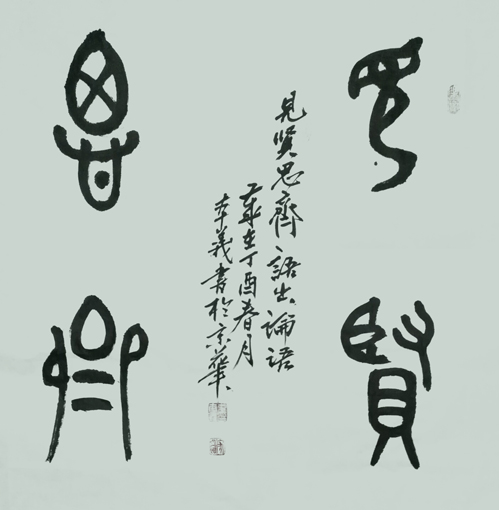 見賢
思齊
見賢思齊語出論語
歲在丁酉春月
李義書於京華